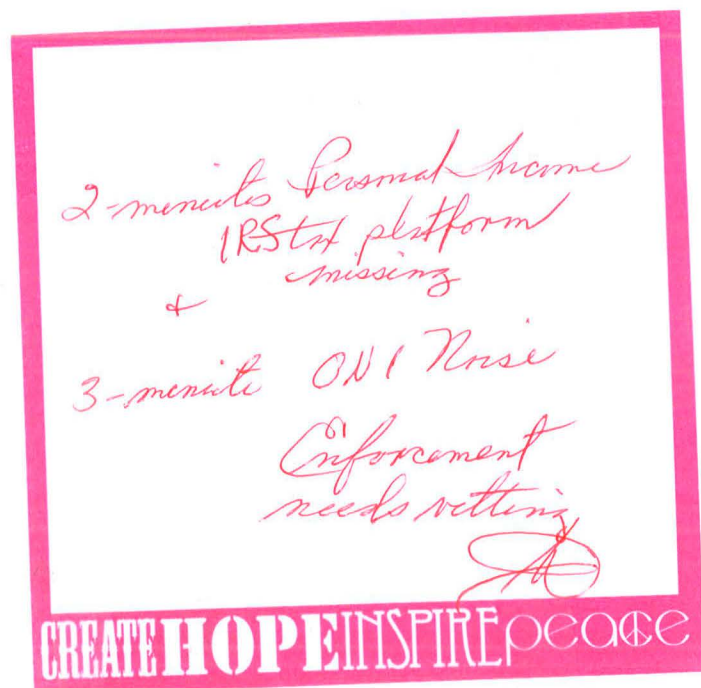 2-minutes Personal Income
IRS tax platform
missing
+
3-minute ONI Noise
Enforcement
needs vetting
CREATE HOPE INSPIRE peace